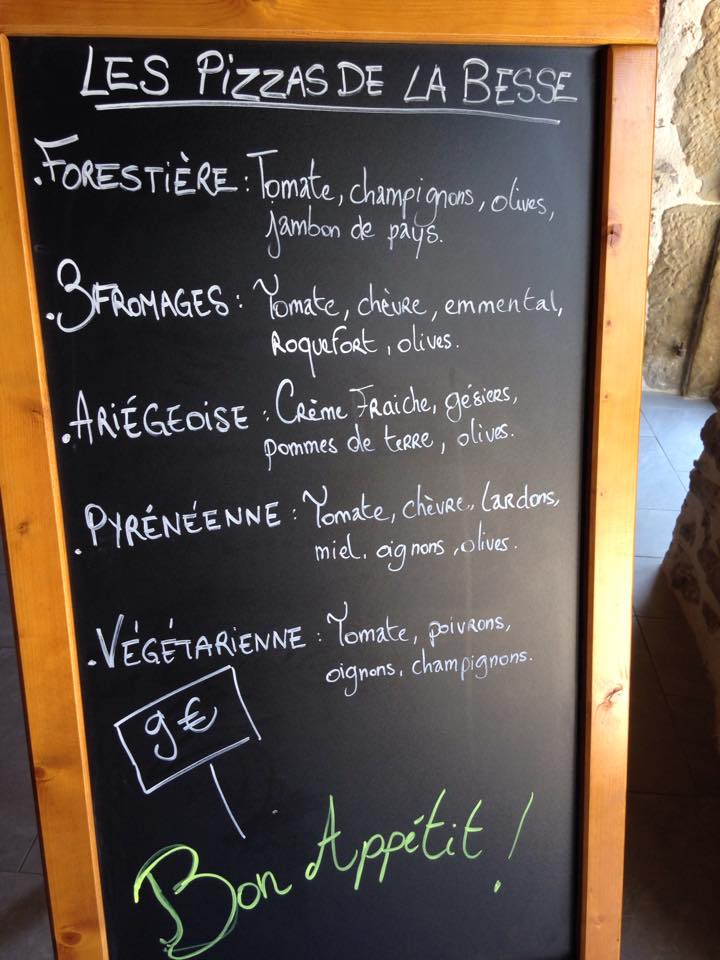 LES PIZZAS DE LA BESSE
. FORESTIÈRE : Tomate, champignons, olives,
jambon de pays.
. 3 FROMAGES : Tomate, chèvre, emmental,
ROQUEFORT, olives.
. ARIÉGEOISE : CRÈME FRAICHE, gésiers,
pommes de terre, olives.
. PYRÉNÉENNE : Tomate, chèvre, lardons,
miel, oignons, olives.
. VÉGÉTARIENNE : Tomate, poivrons,
oignons, champignons.
9€
Bon Appétit !